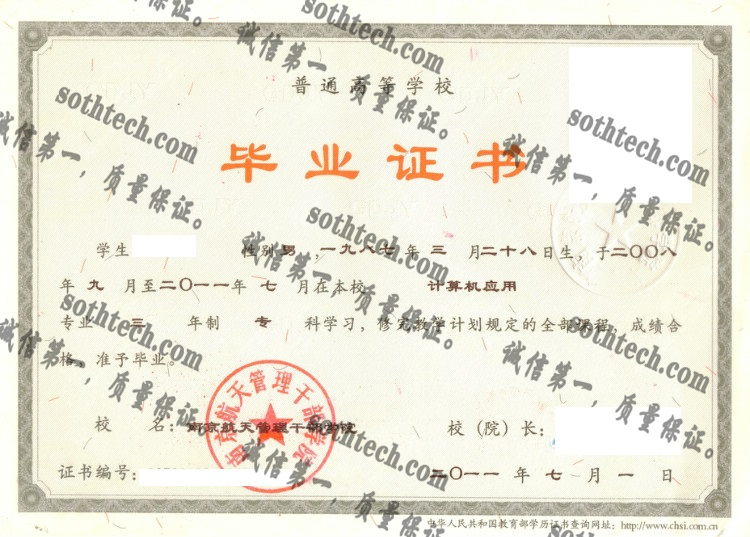 普通高等学校
毕业证书
学生 性别 男 ,一九八七年 三 月二十八日生，于二〇〇八
年 九 月至二〇一一年 七 月在本校 计算机应用
专业 三 年制 专 科学习，修完教学计划规定的全部课程，成绩合
格，准予毕业。
校 名：南京航天管理干部学院
校（院）长：
证书编号：
二〇一一年 七 月 一 日
中华人民共和国教育部学历证书查询网址：http://www.chsi.com.cn
南京航天管理干部学院
sothtech.com
诚信第一，质量保证。
sothtech.com
诚信第一，质量保证。
sothtech.com
诚信第一，质量保证。
sothtech.com
诚信第一，质量保证。
sothtech.com
诚信第一，质量保证。
sothtech.com
诚信第一，质量保证。
sothtech.com
诚信第一，质量保证。